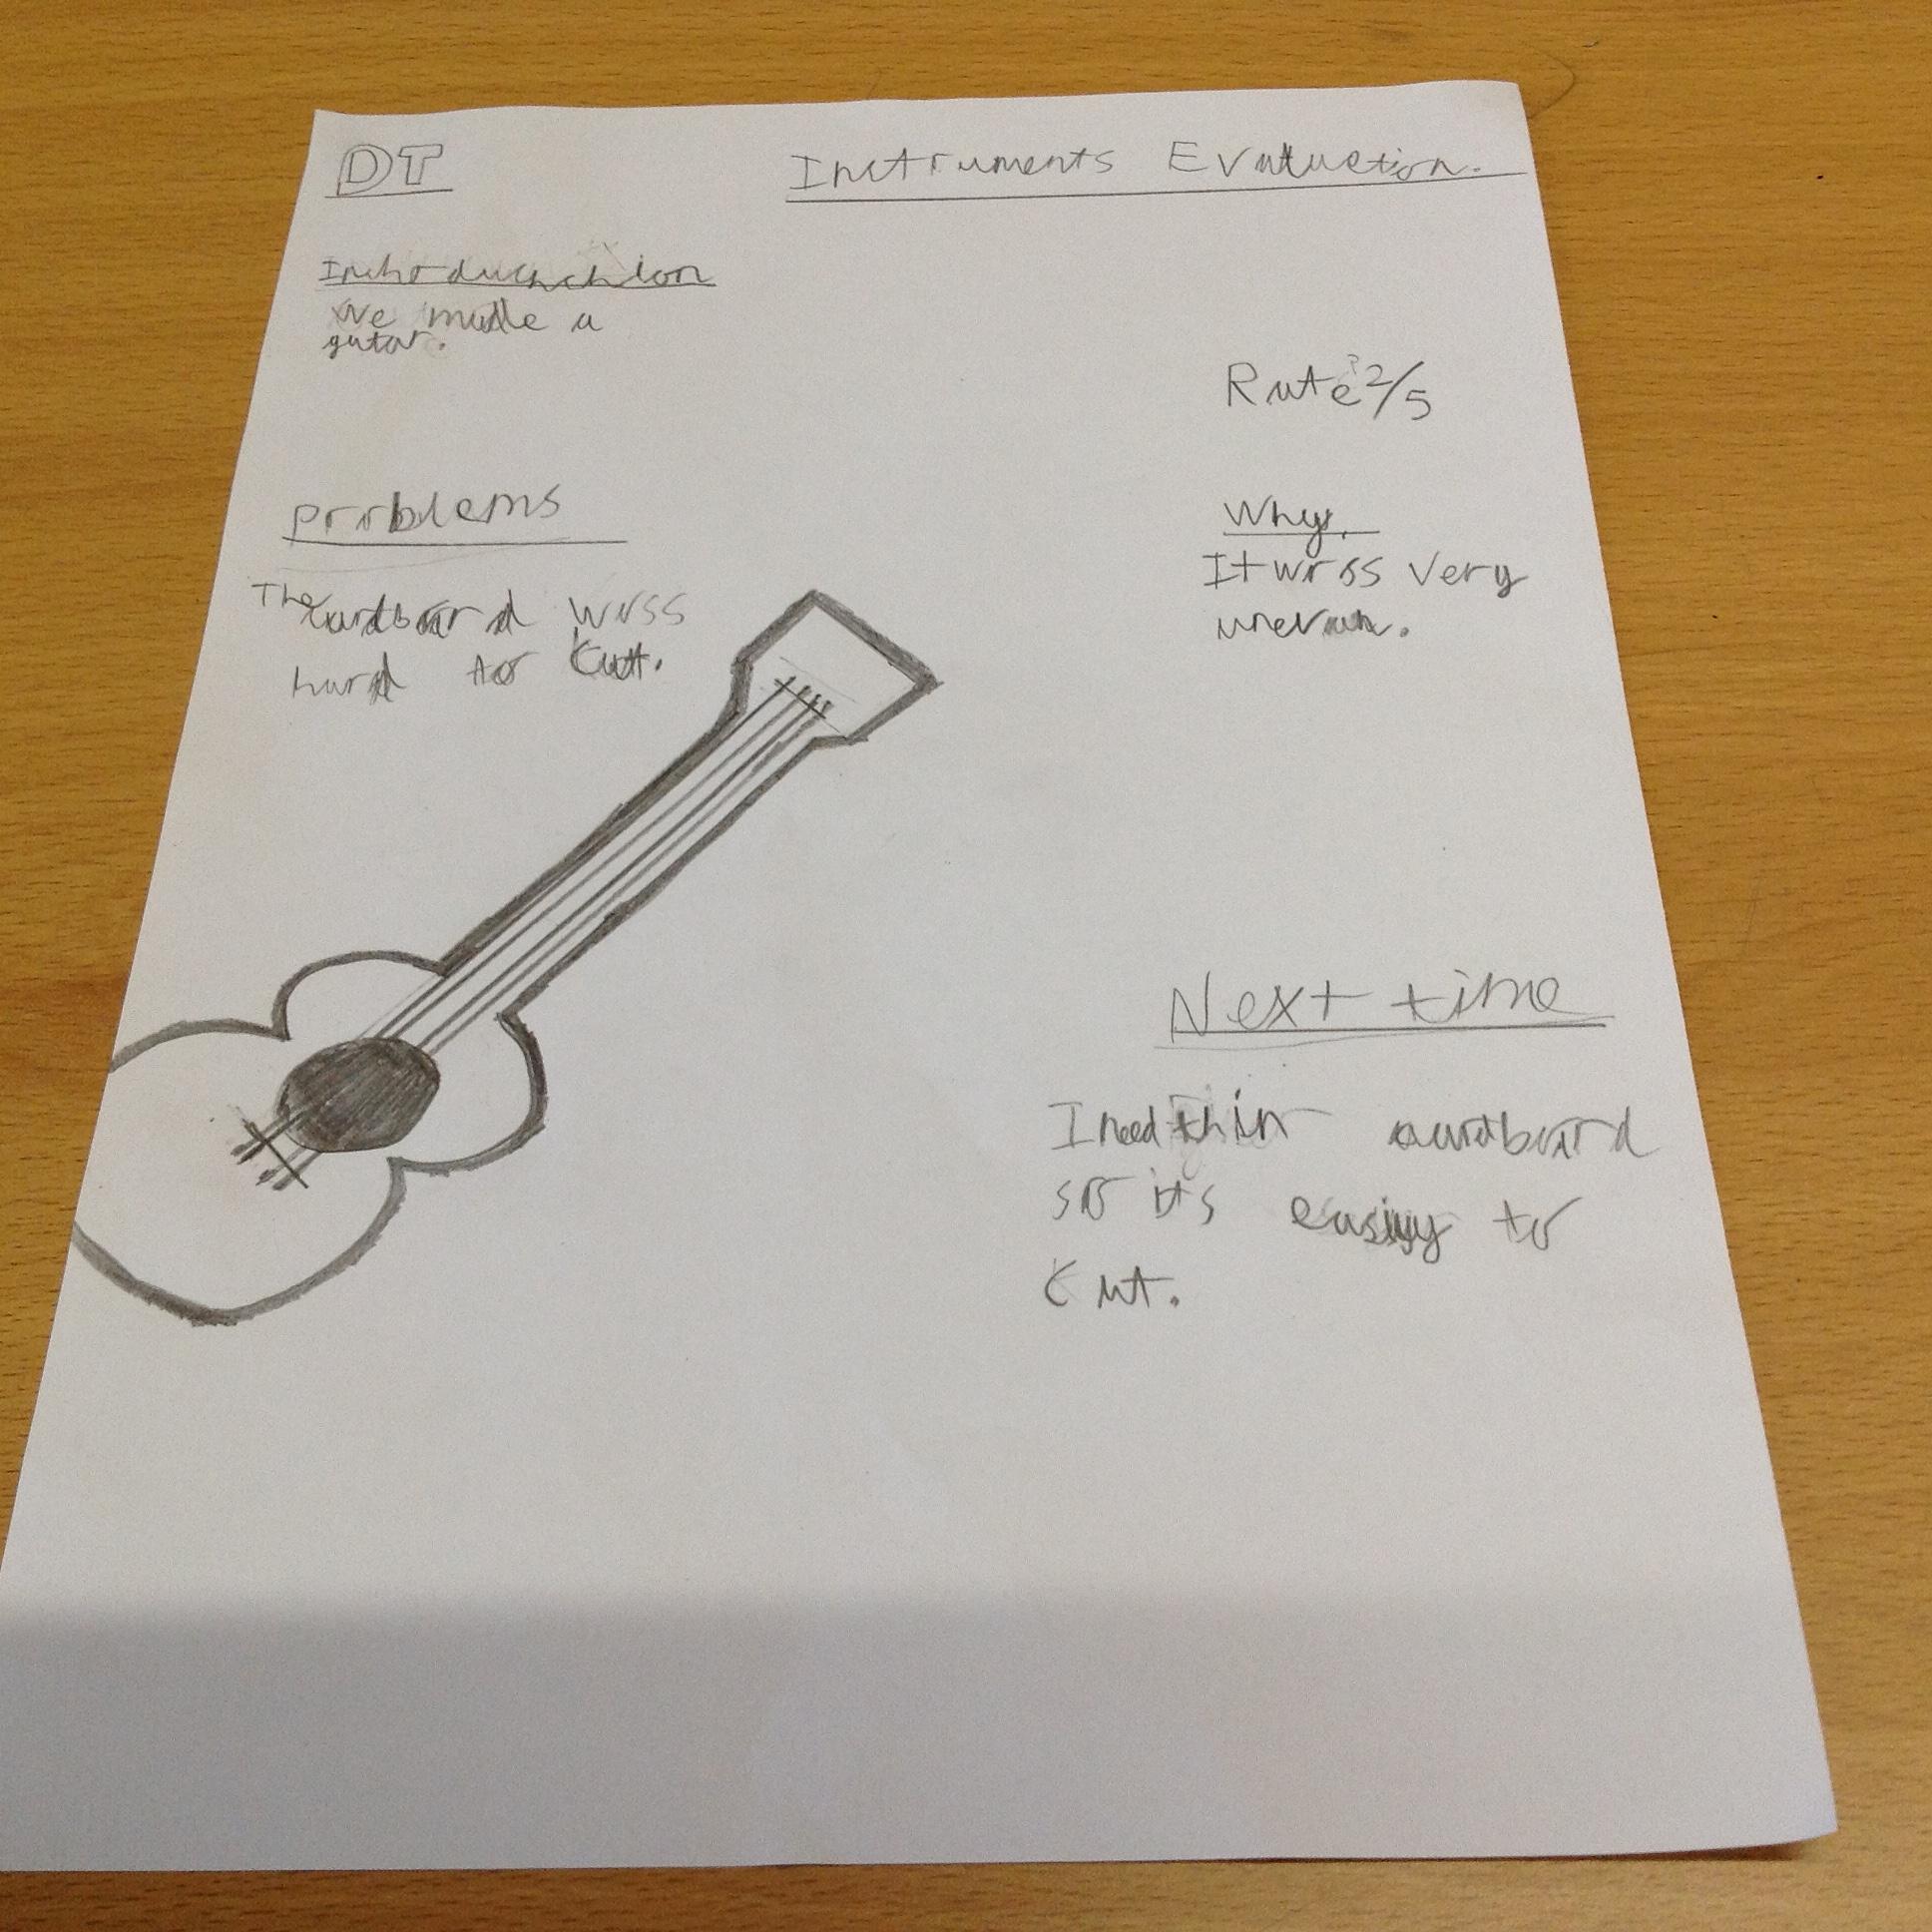 DT
Instruments Evaluation.
Introducnchion
We made a
gutar.
Rate 2/5
problems
The cardboard wass
hard to cut.
Why.
It wass very
unevan.
Next time
I need thin cardboard
so its easiyy to
cut.